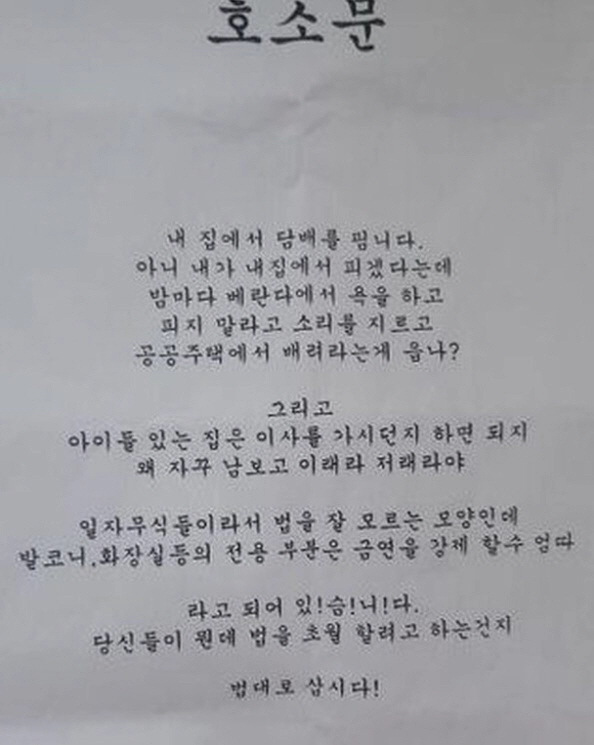 호소문
내 집에서 담배를 핍니다.
아니 내가 내집에서 피겠다는데
밤마다 베란다에서 욕을 하고
피지 말라고 소리를 지르고
공공주택에서 배려라는게 읍나?
그리고
아이들 있는 집은 이사를 가시던지 하면 되지
왜 자꾸 남보고 이래라 저래라야
일자무식들이라서 법을 잘 모르는 모양인데
발코니,화장실등의 전용 부분은 금연을 강제 할수 업따
라고 되어 있!슴!니!다.
당신들이 뭔데 법을 초월 할려고 하는건지
법대로 삽시다!